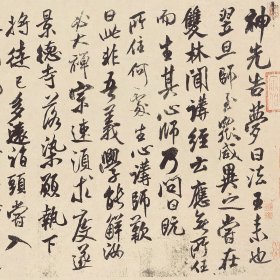 神先告夢曰法王来也
翌旦師至衆咸異之嘗在
雙林聞講經云應無所
而生其心師乃問曰既
所住何處生心講師歎
曰此非吾義學能解汝
大禪宗連求度遂
景德寺落染頓執下
將徒已多遂詣頭嘗入